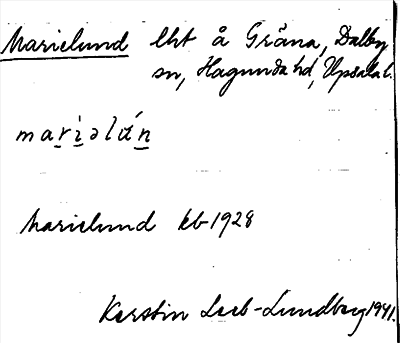 Marielund lht å Gräna, Dalby
sn, Hagunda hd, Upsala l.
mariəlún
Marielund kb 1928
Kerstin Leeb-Lundberg 1941.